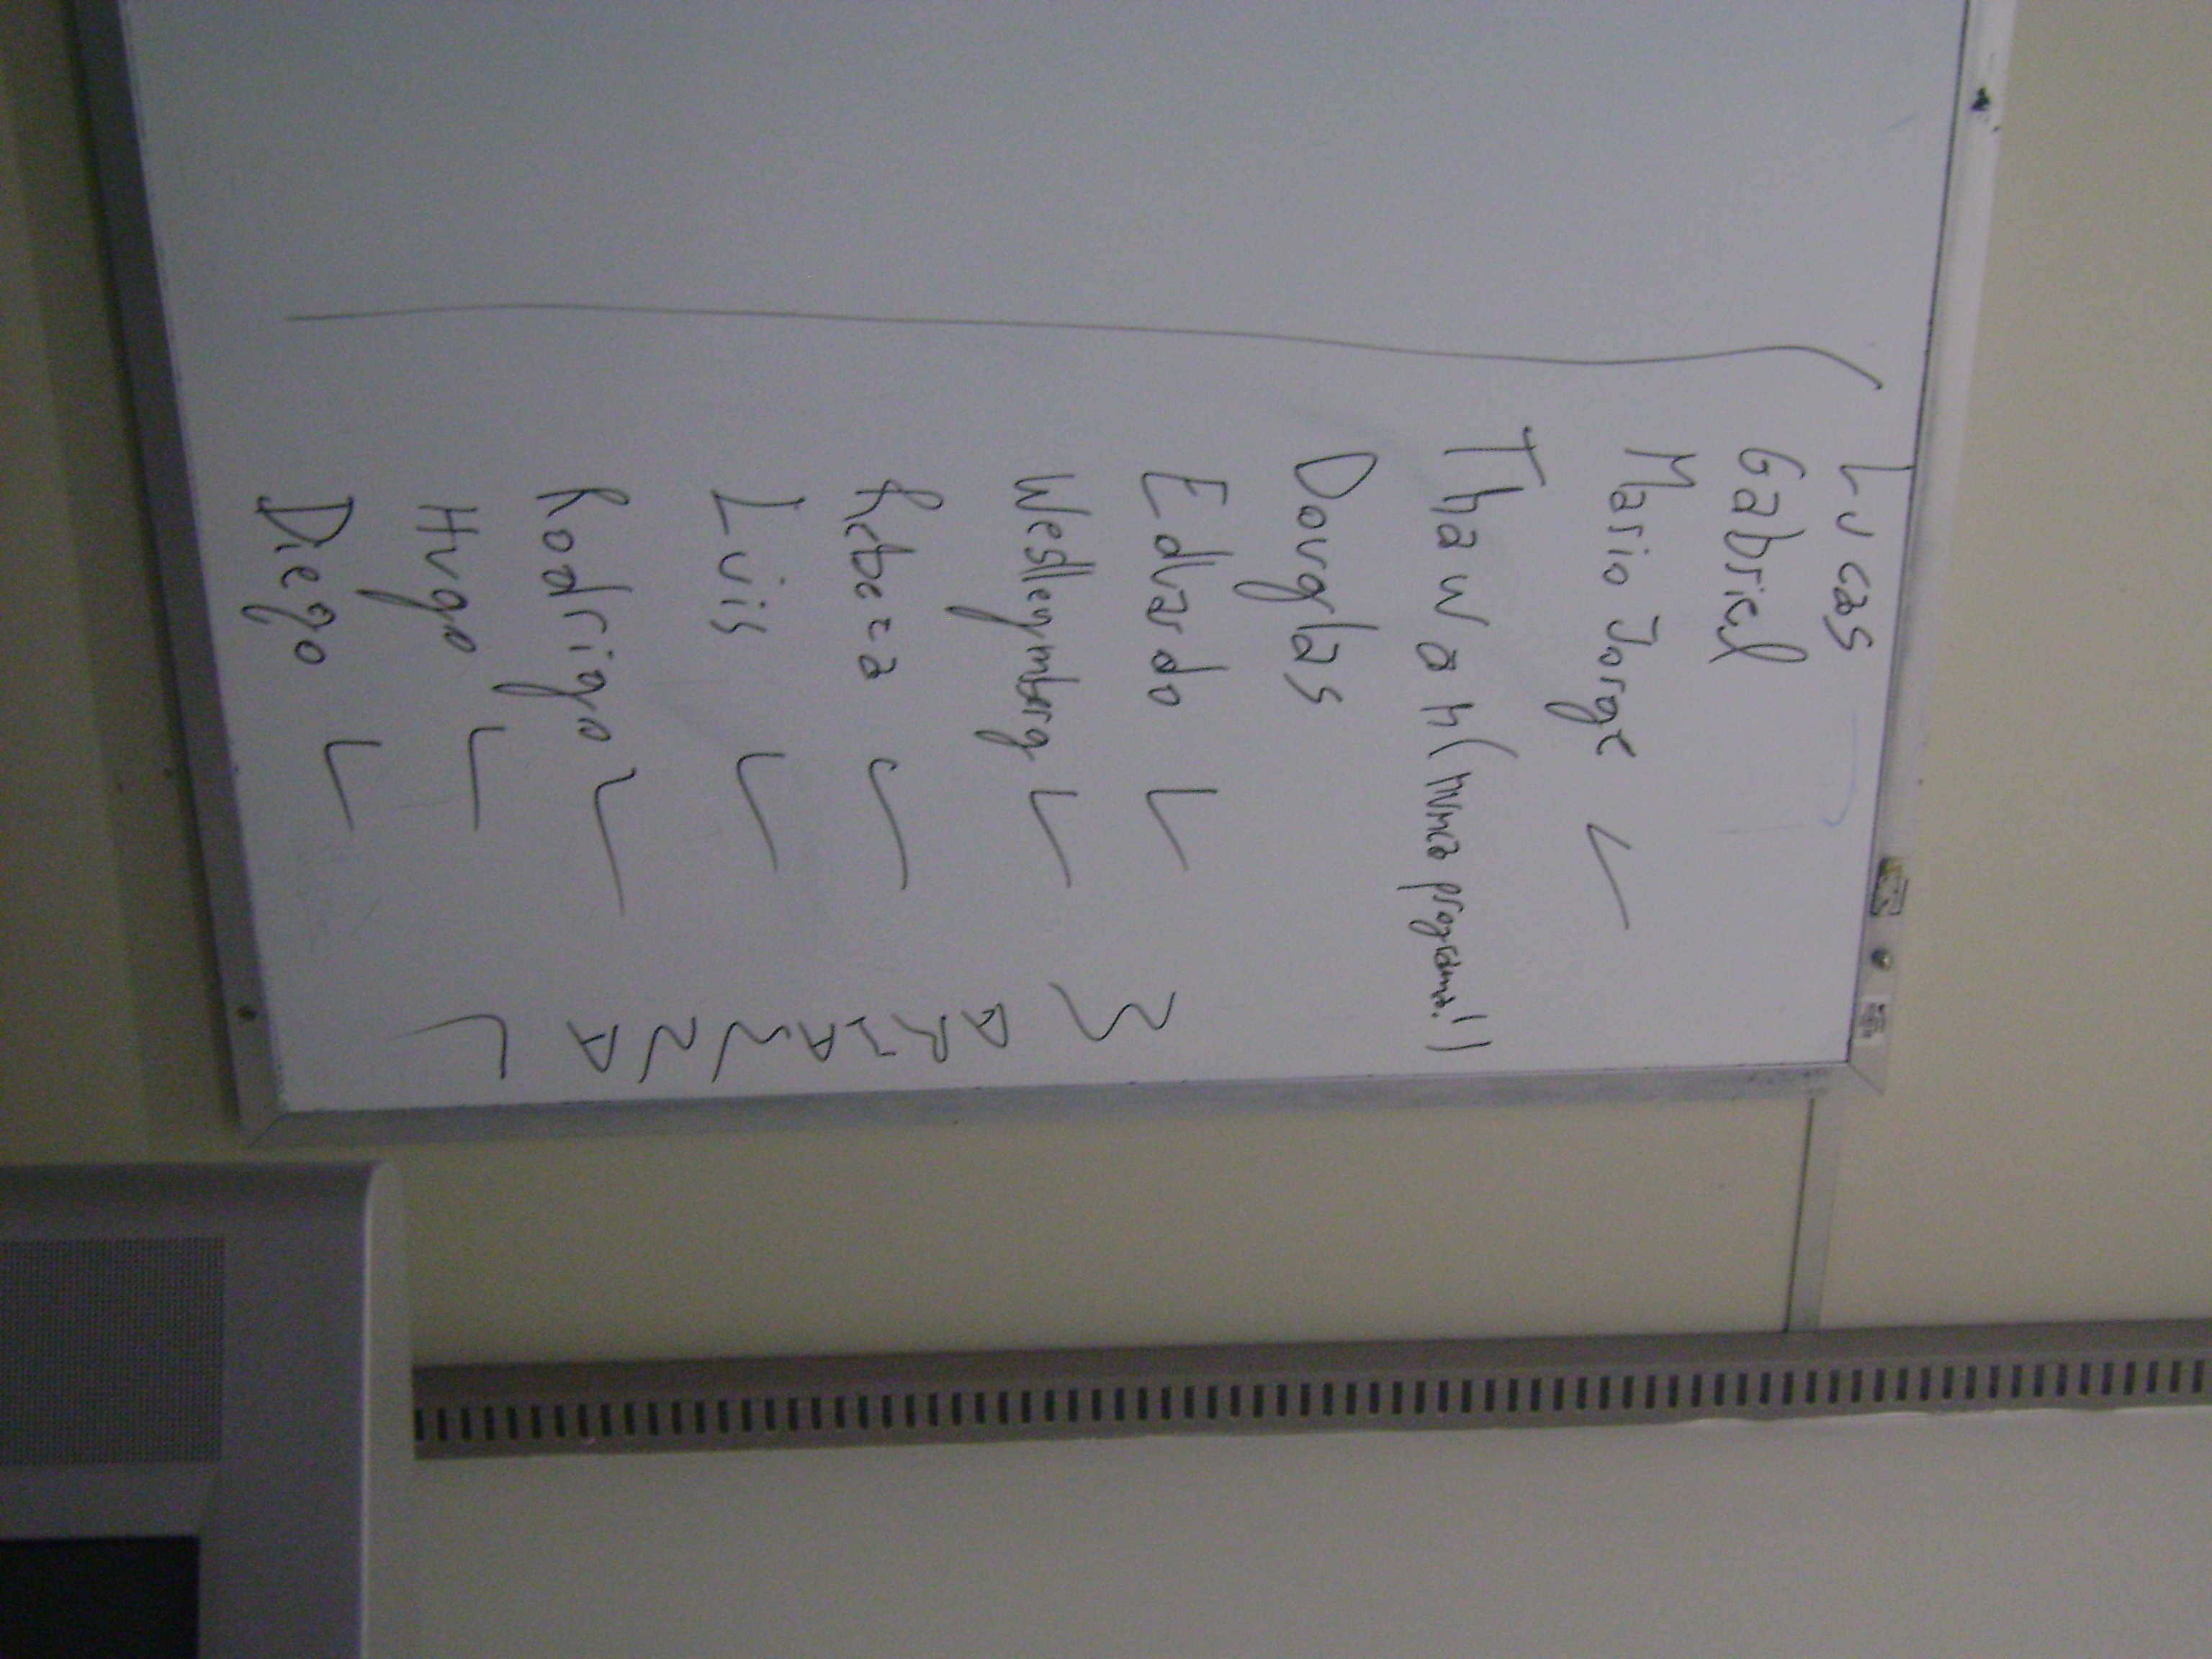 Lucas
Gabriel
Mario Jorge ✓
Thawan (nunca programa!)
Douglas
Eduardo ✓
Weslleymberg ✓
Rebeca ✓
Luis ✓
Rodrigo ✓
Hugo ✓
Diego ✓
MARIANNA ✓